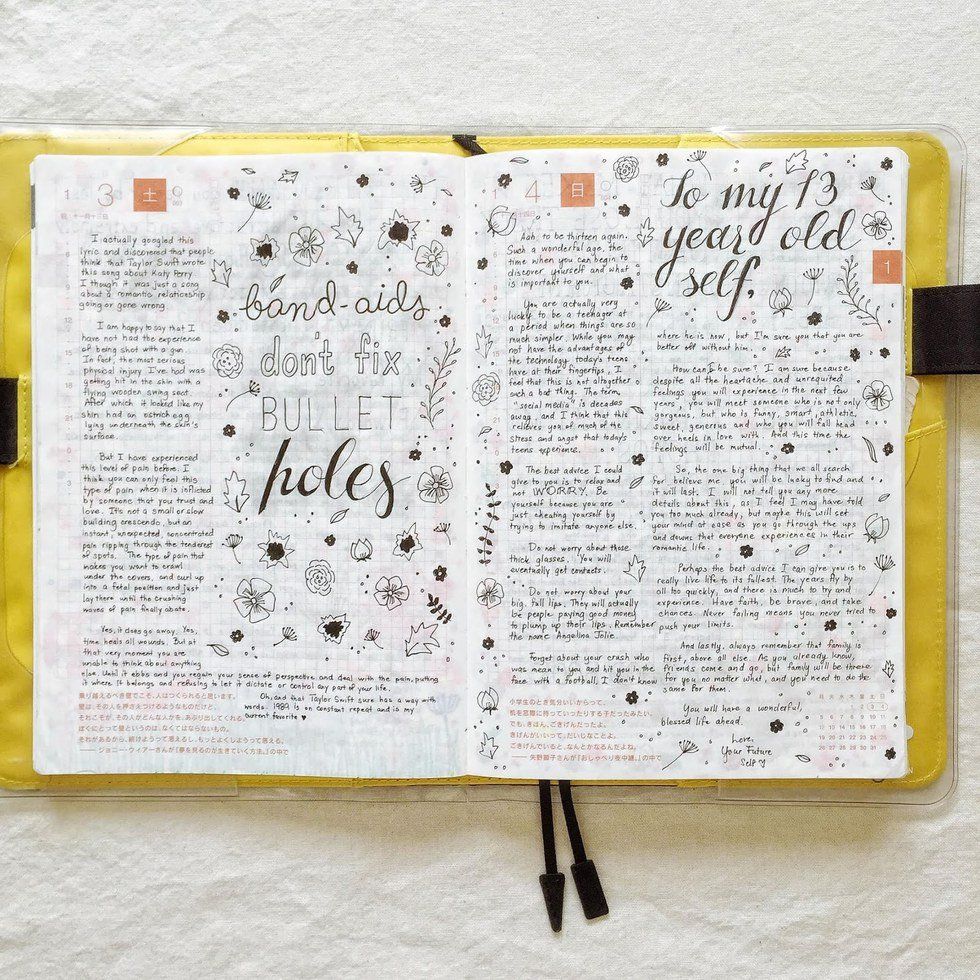 1 3 土
十一月十三日
I actually googled this
lyric and discovered that people
think that Taylor Swift wrote
this song about Katy Perry.
I though it was just a song
about a romantic relationship
going or gone wrong.
I am happy to say that I
have not had the experience
of being shot with a gun.
In fact, the most serious
physical injury I've had was
getting hit in the skin with a
flying wooden swing seat.
After which it looked like my
shin had an ostrich egg
lying underneath the skin's
surface.
But I have experienced
this level of pain before. I
think you can only feel this
type of pain when it is inflicted
by someone that you trust and
love. It's not a small or slow
building crescendo, but an
instant, unexpected, concentrated
pain ripping through the tenderest
of spots. The type of pain that
makes you want to crawl
under the covers, and curl up
into a fetal position and just
lay there until the crushing
waves of pain finally abate.
Yes, it does go away. Yes,
time heals all wounds. But at
that very moment you are
unable to think about anything
else. Until it ebbs and you regain your sense of perspective and deal with the pain, putting
it where it belongs and refusing to let it dictate or control any part of your life.
Oh, and that Taylor Swift sure has a way with
words. 1989 is on constant repeat and is my
current favorite ♥
band-aids
don't fix
BULLET
holes
乗り越えるべき壁でこそ、人はつくられると思います。
壁は、その人を押さえつけるようなものだけど、
それこそが、その人がどんな人かを、あぶり出してくれる。
ぼくにとって壁というのは、なくてはならないもの。
それがあるから、続けようって思えるし、もっとよくしようって思える。
—— ジョニー・ウィアーさんが『夢を見るのが生きていく方法。』の中で
1 4 日
To my 13
year old
self,
1
Aah, to be thirteen again.
Such a wonderful age, the
time when you can begin to
discover yourself and what
is important to you.
You are actually very
lucky to be a teenager at
a period when things are so
much simpler. While you may
not have the advantages of
the technology today's teens
have at their fingertips, I
feel that this is not altogether
such a bad thing. The term
"social media" is decades
away, and I think that this
relieves you of much of the
stress and angst that today's
teens experience.
The best advice I could
give to you is to relax and
not WORRY. Be
yourself because you are
just cheating yourself by
trying to imitate anyone else.
Do not worry about those
thick glasses. You will
eventually get contacts.
Do not worry about your
big, full lips. They will actually
be people paying good money
to plump up their lips. Remember
the name Angelina Jolie.
Forget about your crush who
was mean to you and hit you in the
face with a football, I don't know
where he is now, but I'm sure you that you are
better off without him.
How can I be sure? I am sure because
despite all the heartache and unrequited
feelings you will experience in the next few
years, you will meet someone who is not only
gorgeous, but who is funny, smart, athletic,
sweet, generous and who you will fall head
over heels in love with. And this time the
feelings will be mutual.
So, the one big thing that we all search
for believe me, you will be lucky to find and
it will last. I will not tell you any more
details about this, as I feel I may have told
you too much already, but maybe this will set
your mind at ease as you go through the ups
and downs that everyone experiences in their
romantic life.
Perhaps the best advice I can give you is to
really live life to its fullest. The years fly by
all too quickly, and there is much to try and
experience. Have faith, be brave, and take
chances. Never failing means you never tried to
push your limits.
And lastly, always remember that family is
first, above all else. As you already know,
friends come and go, but family will be there
for you no matter what, and you need to do the
same for them.
You will have a wonderful,
blessed life ahead.
Love,
Your Future
Self ♡
小学生のとき気分いいからって、
机を窓際に持っていったりする子だったみたい。
でも、きほん、ごきげんだった。
きげんがいいって、だいじなことよ。
ごきげんでいると、なんとかなるんだよね。
—— 矢野顕子さんが『おしゃべりを中継。』の中で
月 火 水 木 金 土 日
1 2 3 4
5 6 7 8 9 10 11
12 13 14 15 16 17 18
19 20 21 22 23 24 25
26 27 28 29 30 31